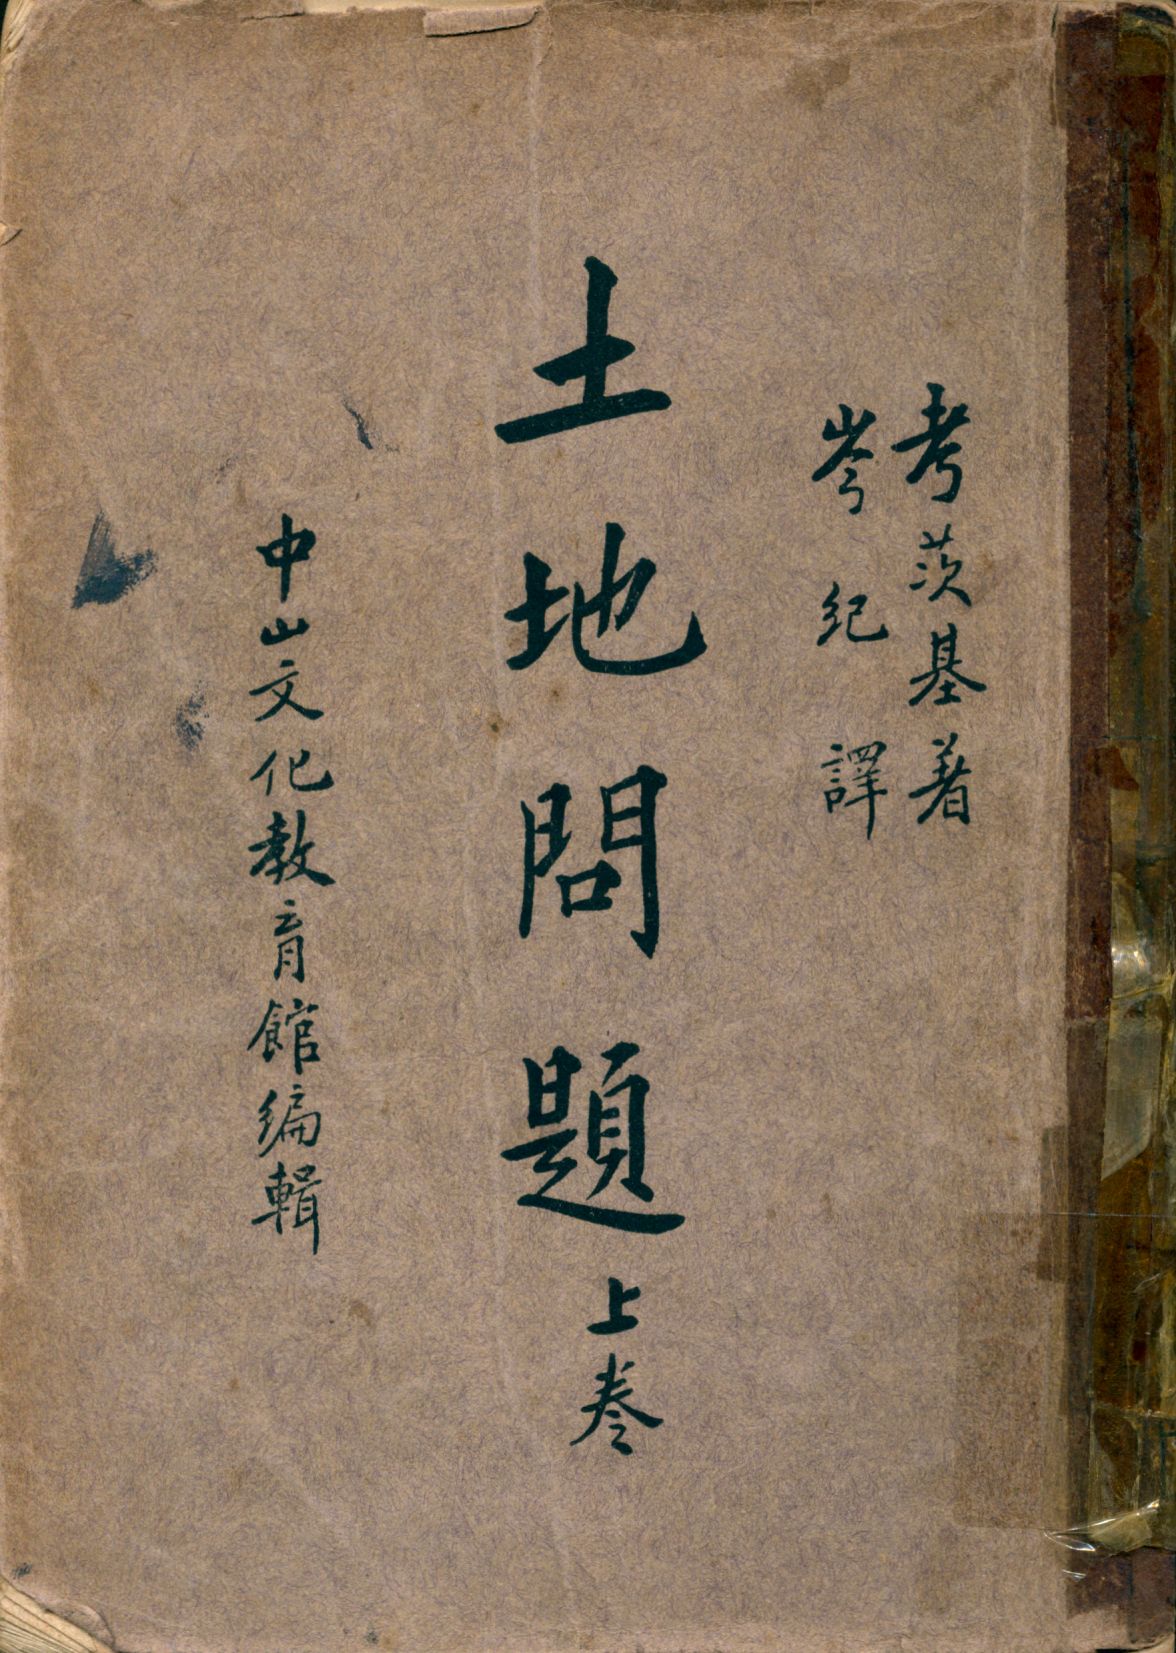 考茨基著
岑紀譯
土地問題上卷
中山文化教育館編輯